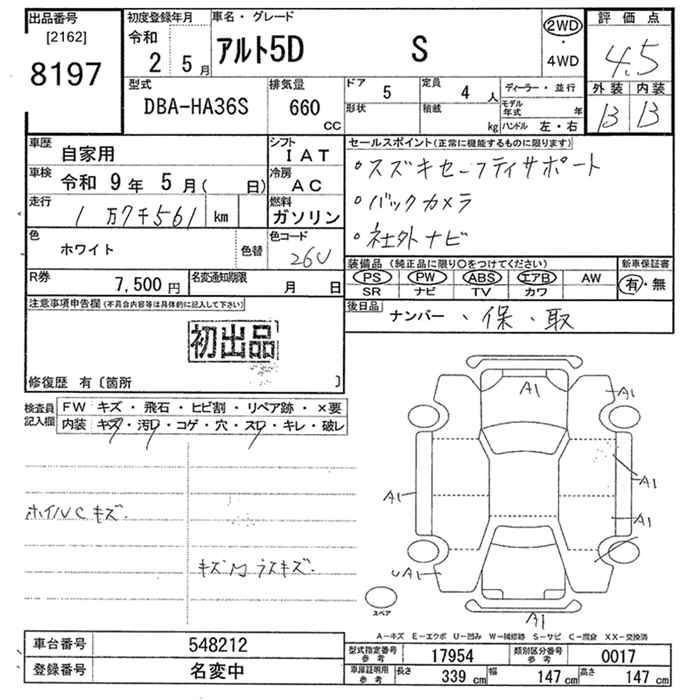 出品番号
[2162]
8197
初度登録年月
令和
2 5月
車名・グレード
アルト5D S
2WD
・
4WD
評価点
4.5
外装 内装
B B
型式
DBA-HA36S
排気量
660
CC
ドア 5
定員 4 人
ディーラー・並行
形状
積載 kg
モデル年式 年
ハンドル 左・右
車歴
自家用
シフト
IAT
車検
令和 9年 5月( 日)
冷房
AC
走行
1万7千561 km
燃料
ガソリン
色
ホワイト
色替
色コード
26U
R券
7,500円
名変通知期限
月 日
セールスポイント(正常に機能するものに限ります)
・スズキセーフティサポート
・バックカメラ
・社外ナビ
装備品(純正品に限り○をつけてください)
PS PW ABS エアB AW
SR ナビ TV カワ
新車保証書
有・無
後日品
ナンバー・保・取
注意事項申告欄(不具合内容等は具体的に記入して下さい)
初出品
修復歴 有〔箇所 〕
検査員記入欄
FW キズ・飛石・ヒビ割・リペア跡・×要
内装 キズ・汚レ・コゲ・穴・スレ・キレ・破レ
ホイルCキズ.
キズ 内 ラスキズ.
A1
A1
A1
A1
A1
UA1
A1
スペア
A－キズ E－エクボ U－凹み W－補修跡 S－サビ C－腐食 XX－交換済
車台番号 548212
登録番号 名変中
型式指定番号 参考 17954
類別区分番号 参考 0017
車庫証明用 参考
長さ 339 cm 幅 147 cm 高さ 147 cm